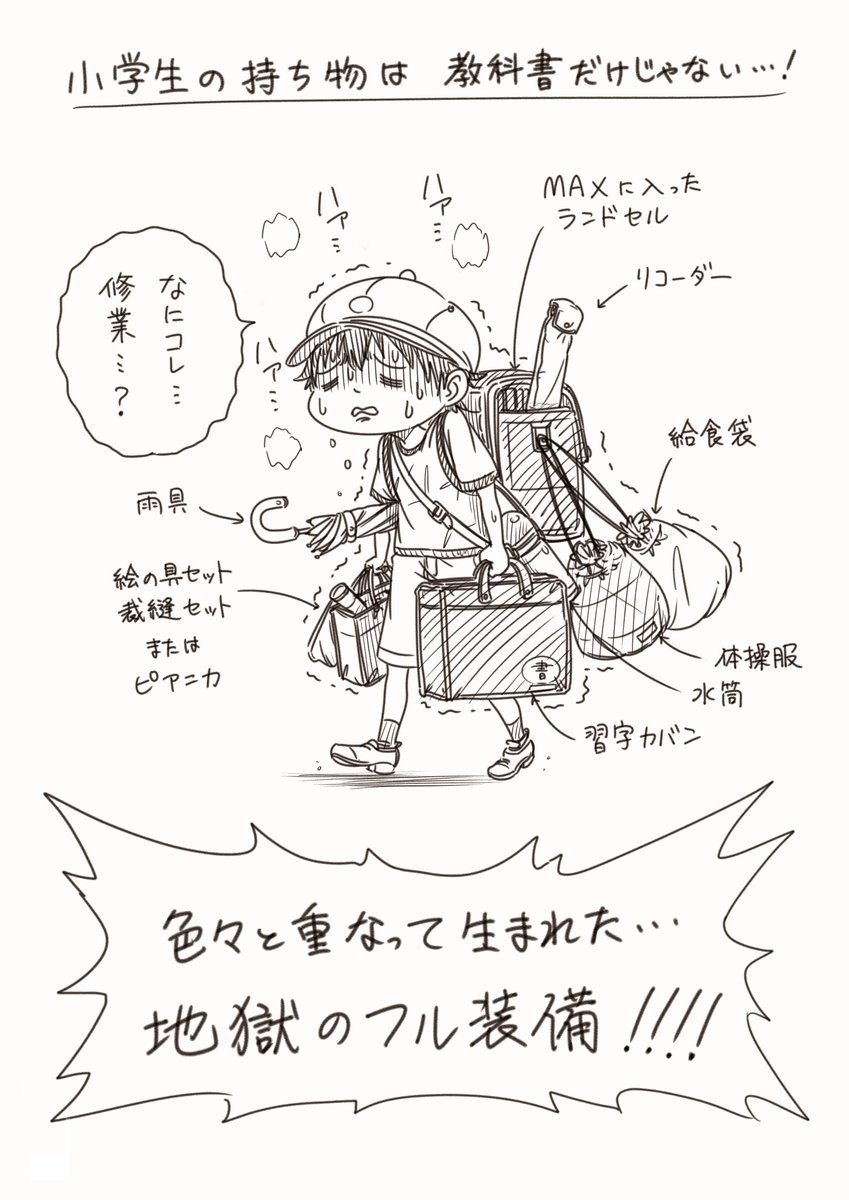 小学生の持ち物は 教科書だけじゃない…!
ハァ…
ハァ…
MAXに入った
ランドセル
リコーダー
なにコレ…
修業…?
ハァ…
給食袋
雨具
絵の具セット
裁縫セット
または
ピアニカ
書
体操服
水筒
習字カバン
色々と重なって生まれた…
地獄のフル装備!!!!